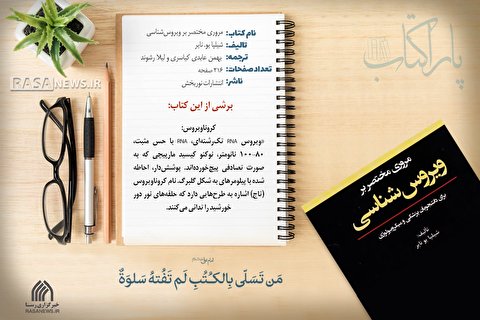 پاراکتاب
RASANEWS.IR
نام کتاب: مروری مختصر بر ویروس‌شناسی
تالیف: شیلیا یو. نایر
ترجمه: بهمن عابدی کیاسری و لیلا رشوند
تعداد صفحات: ۲۱۶ صفحه
ناشر: انتشارات نوربخش
برشی از این کتاب:
کروناویروس:
«ویروس RNA تک‌رشته‌ای، RNA با حس مثبت،
۸۰-۱۰۰ نانومتر، نوکلئو کپسید مارپیچی که به
صورت تصادفی پیچ‌خورده‌اند. پوشش‌دار، احاطه
شده با پپلومرهای به شکل گلبرگ. نام کروناویروس
(تاج) اشاره به طرح‌هایی دارد که حلقه‌های نور دور
خورشید را تداعی می‌کنند.
مروری مختصر بر
ویروس شناسی
برای دانشجویان پزشکی و میکروبیولوژی
تألیف:
شیلیا یو نایر
مَن تَسَلّی بِالکُتُبِ لَم تَفُتهُ سَلوَةٌ
خبرگزاری رسا
RASANEWS.IR